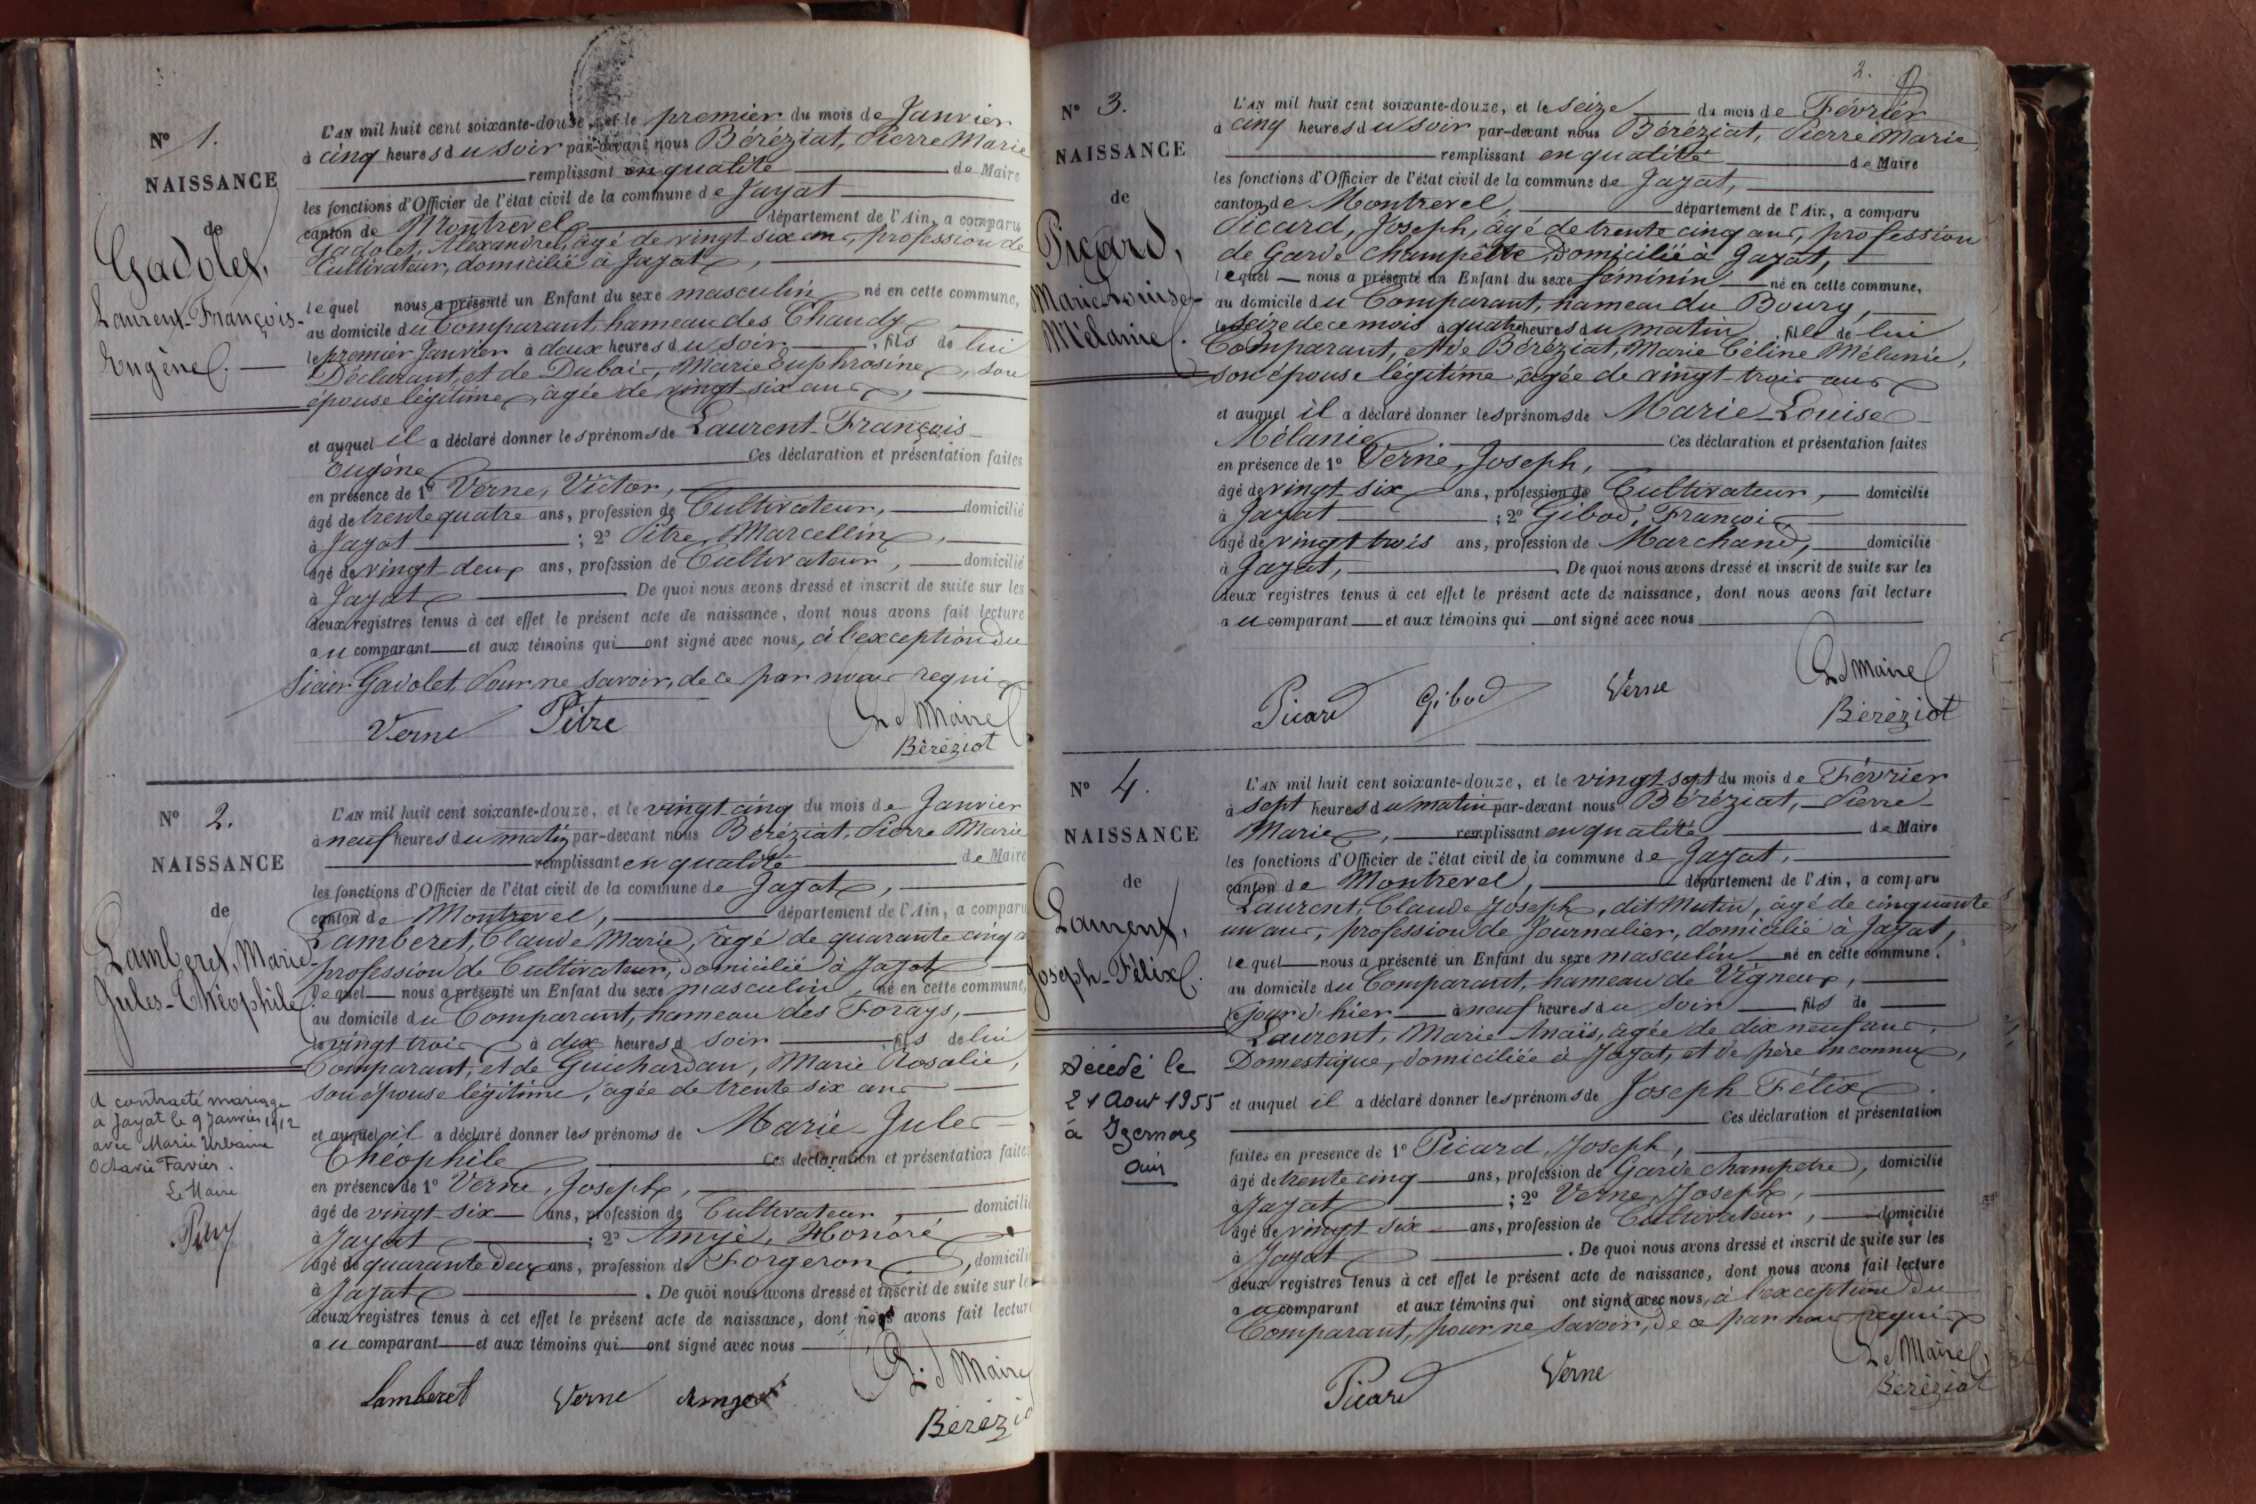 N° 1.
NAISSANCE
de
Gadolet,
Laurent-François-
Eugène.
L'AN mil huit cent soixante-douze, et le premier du mois de Janvier
à cinq heures du soir par-devant nous Béréziat, Pierre Marie
remplissant en qualité de Maire
les fonctions d'Officier de l'état civil de la commune de Jayat
canton de Montrevel, département de l'Ain, a comparu
Gadolet, Alexandre, âgé de vingt six ans, profession de
Cultivateur, domicilié à Jayat,
lequel nous a présenté un Enfant du sexe masculin né en cette commune,
au domicile du Comparant, hameau des Chaudy
le premier Janvier à deux heures du soir, fils de lui
Déclarant, et de Dubois, Marie Euphrosine, son
épouse légitime, âgée de vingt six ans,
et auquel il a déclaré donner les prénoms de Laurent-François-
Eugène Ces déclaration et présentation faites
en présence de 1° Verne, Victor,
âgé de trente quatre ans, profession de Cultivateur, domicilié
à Jayat ; 2° Pitre, Marcellin,
âgé de vingt deux ans, profession de Cultivateur, domicilié
à Jayat De quoi nous avons dressé et inscrit de suite sur les
deux registres tenus à cet effet le présent acte de naissance, dont nous avons fait lecture
au comparant et aux témoins qui ont signé avec nous, à l'exception du
sieur Gadolet, pour ne savoir, de ce par nous requis
Verne Pitre Le Maire
Béréziat
N° 2.
NAISSANCE
de
Lamberet, Marie-
Jules-Théophile
A contracté mariage
à Jayat le 9 Janvier 1912
avec Marie Urbaine
Octavie Favier.
Le Maire
L'AN mil huit cent soixante-douze, et le vingt cinq du mois de Janvier
à neuf heures du matin par-devant nous Béréziat, Pierre Marie
remplissant en qualité de Maire
les fonctions d'Officier de l'état civil de la commune de Jayat,
canton de Montrevel, département de l'Ain, a comparu
Lamberet, Claude Marie, âgé de quarante cinq
profession de Cultivateur, domicilié à Jayat
lequel nous a présenté un Enfant du sexe masculin, né en cette commune,
au domicile du Comparant, hameau des Forays,
le vingt trois à dix heures d soir fils de lui
Comparant, et de Guichardan, Marie Rosalie,
son épouse légitime, âgée de trente six ans
et auquel il a déclaré donner les prénoms de Marie-Jules-
Théophile Ces déclaration et présentation faites
en présence de 1° Verne, Joseph,
âgé de vingt-six ans, profession de Cultivateur, domicilié
à Jayat ; 2° Amyé, Honoré
âgé de quarante deux ans, profession de Forgeron, domicilié
à Jayat . De quoi nous avons dressé et inscrit de suite sur les
deux registres tenus à cet effet le présent acte de naissance, dont nous avons fait lecture
au comparant et aux témoins qui ont signé avec nous
Lamberet Verne Le Maire
Béréziat
2.
N° 3.
NAISSANCE
de
Picard,
Marie-Louise-
Mélanie.
L'AN mil huit cent soixante-douze, et le seize du mois de Février
à cinq heures du soir par-devant nous Béréziat, Pierre Marie,
remplissant en qualité de Maire
les fonctions d'Officier de l'état civil de la commune de Jayat,
canton de Montrevel, département de l'Ain, a comparu
Picard, Joseph, âgé de trente cinq ans, profession
de Garde Champêtre, Domicilié à Jayat,
lequel nous a présenté un Enfant du sexe féminin né en cette commune,
au domicile du Comparant, hameau du Bourg,
le seize de ce mois à quatre heures du matin, fille de lui
Comparant, et de Béréziat, Marie Céline Mélanie,
son épouse légitime, âgée de vingt-trois ans
et auquel il a déclaré donner les prénoms de Marie-Louise-
Mélanie. Ces déclaration et présentation faites
en présence de 1° Verne, Joseph,
âgé de vingt six ans, profession de Cultivateur, domicilié
à Jayat ; 2° Gibod, François
âgé de vingt trois ans, profession de Marchand, domicilié
à Jayat, De quoi nous avons dressé et inscrit de suite sur les
deux registres tenus à cet effet le présent acte de naissance, dont nous avons fait lecture
au comparant et aux témoins qui ont signé avec nous
Picard Gibod Verne Le Maire
Béréziat
N° 4.
NAISSANCE
de
Laurent,
Joseph-Félix.
Décédé le
21 Aout 1955
à Izernore
Ain
L'AN mil huit cent soixante-douze, et le vingt-sept du mois de Février
à sept heures du matin par-devant nous Béréziat, Pierre-
Marie, remplissant en qualité de Maire
les fonctions d'Officier de l'état civil de la commune de Jayat,
canton de Montrevel, département de l'Ain, a comparu
Laurent, Claude Joseph, dit Mutin, âgé de cinquante
un ans, profession de Journalier, domicilié à Jayat,
lequel nous a présenté un Enfant du sexe masculin né en cette commune,
au domicile du Comparant, hameau de Vigneux,
le jour d'hier à neuf heures du soir fils de
Laurent, Marie Anaïs, âgée de dix neuf ans,
Domestique, domiciliée à Jayat, et de père inconnu,
et auquel il a déclaré donner les prénoms de Joseph-Félix.
Ces déclaration et présentation
faites en presence de 1° Picard, Joseph,
âgé de trente cinq ans, profession de Garde champetre, domicilié
à Jayat ; 2° Verne, Joseph,
âgé de vingt six ans, profession de Cultivateur, domicilié
à Jayat . De quoi nous avons dressé et inscrit de suite sur les
deux registres tenus à cet effet le présent acte de naissance, dont nous avons fait lecture
au comparant et aux témoins qui ont signé avec nous, à l'exception du
Comparant, pour ne savoir, de ce par nous requis
Picard Verne Le Maire
Béréziat